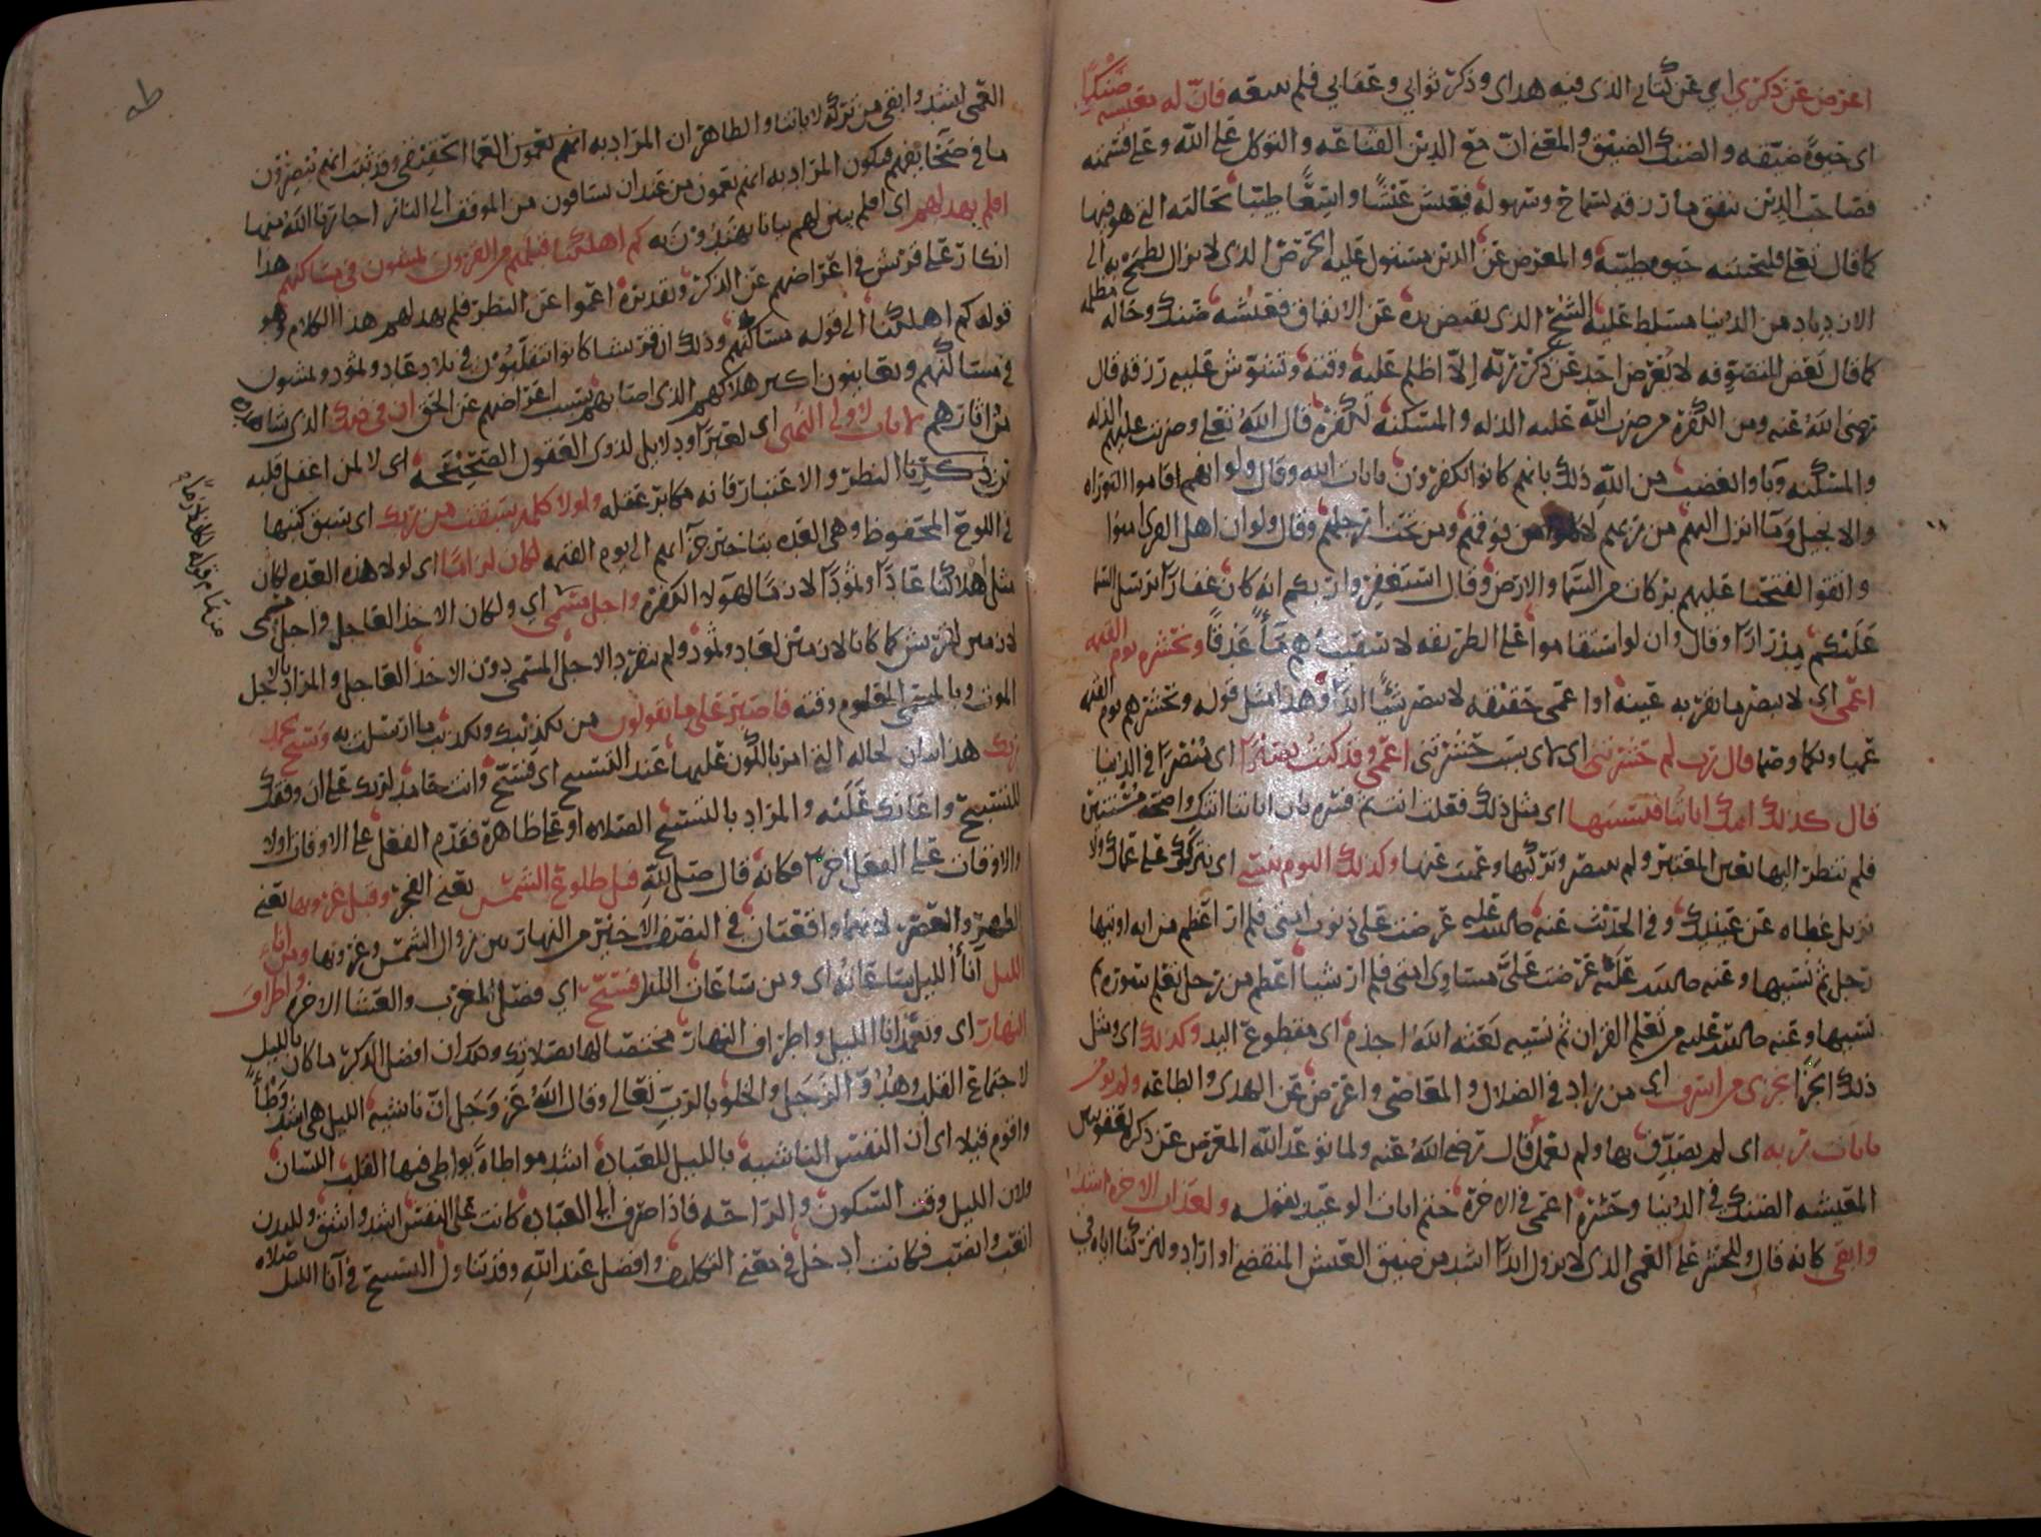 اعرض عن ذكري اي عن كتابي الذي فيه هداي وذكر ثوابي وعقابي فلم يتبعه فان له معيشة ضنكا
اي حيوة ضيقه والضنك الضيق والمعنى ان مع الدين القناعه والتوكل على الله وعلى قسمته
فصاحب الدين ينفق ما رزقه بسماح وسهولة فيعيش عيشا واسعا طيبا بحالته التي هو فيها
كما قال تعلى فلنحيينه حيوة طيبة والمعرض عن الدين مستول عليه الحرص الذي لا يزال يطمح به الى
الازدياد من الدنيا مسلط عليه الشح الذي يقبض يده عن الانفاق فعيشه ضنك وحاله مظلمه
كما قال بعض المتصوفه لا يعرض احد عن ذكر ربه الا اظلم عليه وقته وتشوش عليه رزقه قال
رضي الله عنه ومن الكفره من ضرب الله عليه الذله والمسكنه لكفره قال الله تعلى وضربت عليهم الذله
والمسكنه وباوا بغضب من الله ذلك بانهم كانوا يكفرون بايات الله وقال ولو انهم اقاموا التوراه
والانجيل وما انزل اليهم من ربهم لاكلوا من فوقهم ومن تحت ارجلهم وقال ولو ان اهل القرى امنوا
واتقوا لفتحنا عليهم بركات من السما والارض وقال استغفروا ربكم انه كان غفارا يرسل السما
عليكم مدرارا وقال وان لو استقاموا على الطريقه لاسقيناهم ماء غدقا ونحشره يوم القيمه
اعمى اي لا يبصر ما يقر به عينه او اعمى حقيقه لا يبصر شيئا ابدا وهذا مثل قوله ونحشرهم يوم القيمه
عميا وبكما وصما قال رب لم حشرتني اي لاي سبب حشرتني اعمى وقد كنت بصيرا اي مبصرا في الدنيا
قال كذلك اتتك اياتنا فنسيتها اي مثل ذلك فعلت انت ثم فسره بان اياتنا اتتك واضحة مستنيرة
فلم تنظر اليها بعين المعتبر ولم تبصر وتركتها وعميت عنها وكذلك اليوم تنسى اي نتركك على عماك ولا
نزيل غطاه عن عينيك وفي الحديث عنه صلى الله عليه عرضت علي ذنوب امتي فلم ار اعظم من ايه اوتيها
رجل ثم نسيها وعنه صلى الله عليه عرضت علي مساوي امتي فلم ار شيا اعظم من رجل تعلم سورة ثم
نسيها وعنه صلى الله عليه من تعلم القران ثم نسيه لقي الله اجذم اي مقطوع اليد وكذلك اي ومثل
ذلك الجزا نجزي من اسرف اي من زاد في الضلال والمعاصي واعرض عن الهدى والطاعه ولم يومن
بايات ربه اي لم يصدق بها ولم يعمل قال رضي الله عنه ولما توعد الله المعرض عن ذكره بعقوبتين
المعيشه الضنك في الدنيا وحشره اعمى في الاخرة ختم ايات الوعيد بقوله ولعذاب الاخره اشد
وابقى كانه قال وللحشر على العمى الذي لا يزول ابدا اشد من ضيق العيش المنقضي او اراد ولتركنا اياه في
طه
العمى اشد وابقى من تركه لاياتنا والظاهر ان المراد به انهم يحشرون العما الحقيقي وقد ثبت انهم يبصرون
ما في صحايفهم فيكون المراد به انهم يعمون من عند ان يساقون من الموقف الى النار اجارنا الله منها
افلم يهد لهم اي افلم يبين لهم بيانا يهتدون به كم اهلكنا قبلهم من القرون يمشون في مساكنهم هذا
انكار على قريش في اعراضهم عن الذكر وتقديره اعموا عن النظر فلم يهد لهم هذا الكلام وهو
قوله كم اهلكنا الى قوله مساكنهم وذلك ان قريشا كانوا يتقلبون في بلاد عاد وثمود ويمشون
في مساكنهم ويعاينون اكبر هلاكهم الذي اصابهم بسبب اعراضهم عن الحق ان في ذلك الذي شاهدوه
من اثارهم لايات لاولي النهى اي لعبرا ودلايل لذوي العقول الصحيحه اي لا لمن اغفل قلبه
عن ذكرنا النظر والاعتبار فانه مكابر عقله ولولا كلمة سبقت من ربك اي سبق كتبها
في اللوح المحفوظ وهي العده بتاخير جزآئهم الى يوم القيمه لكان لزاما اي لولا هذه العده لكان
مثل اهلاكنا عادا وثمودا لازما لهولا الكفرة واجل مسمى اي ولكان الاخذ العاجل واجل مسمى
لازمين لقريش كما كانا لازمين لعاد وثمود ولم ينفرد الاجل المسمى دون الاخذ العاجل والمراد بالاجل
الموت وبالمسمى المعلوم وقته فاصبر على ما يقولون من تكذيبك وتكذيب ما ارسلت به وسبح بحمد
ربك هذا بيان لحاله التي امر بالكون عليها عند التسبيح اي فسبح وانت حامد لربك على ان وفقك
للتسبيح واعانك عليه والمراد بالتسبيح الصلاه او على ظاهره فقدم الفعل على الاوقات اولا
والاوقات على الفعل اخرا فكانه قال صل لله قبل طلوع الشمس يعني الفجر وقبل غروبها يعني
الظهر والعصر لانهما واقعتان في النصف الاخير من النهار بين زوال الشمس وغروبها ومن اناء
الليل آناء الليل ساعاته اي ومن ساعات الليل فسبح اي فصل المغرب والعشا الاخره واطراف
النهار اي وتعمد انا الليل واطراف النهار مختصا لها بصلاتك وذلك ان افضل الذكر ما كان بالليل
لاجتماع القلب وهدو الرجل والخلو بالرب تعالى وقال الله عز وجل ان ناشئة الليل هي اشد وطأ
واقوم قيلا اي ان النفس الناشية بالليل للعباده اشد مواطاة يواطي فيها القلب اللسان
ولان الليل وقت السكون والراحه فاذا صرف الى العباده كانت على النفس اشد واشق وللبدن
اتعب وانصب فكانت ادخل في معنى التكليف وافضل عند الله وقد تناول التسبيح في آنا الليل صلاه